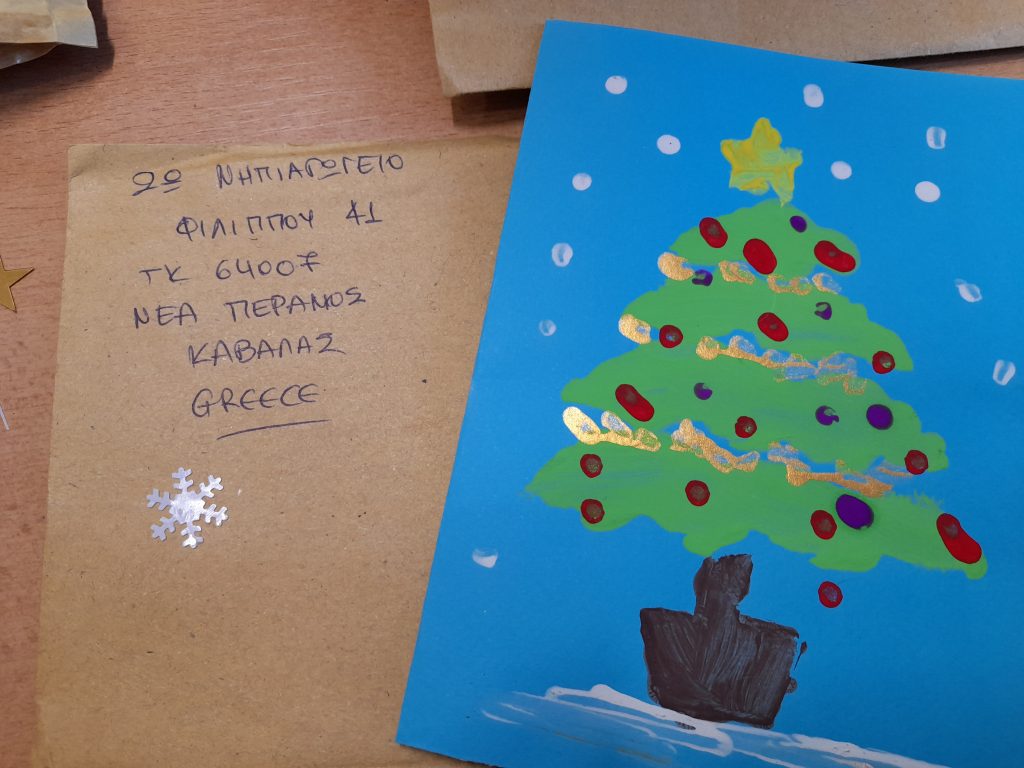 2ο ΝΗΠΙΑΓΩΓΕΙΟ
ΦΙΛΙΠΠΟΥ 41
ΤΚ 64007
ΝΕΑ ΠΕΡΑΜΟΣ
ΚΑΒΑΛΑΣ
GREECE